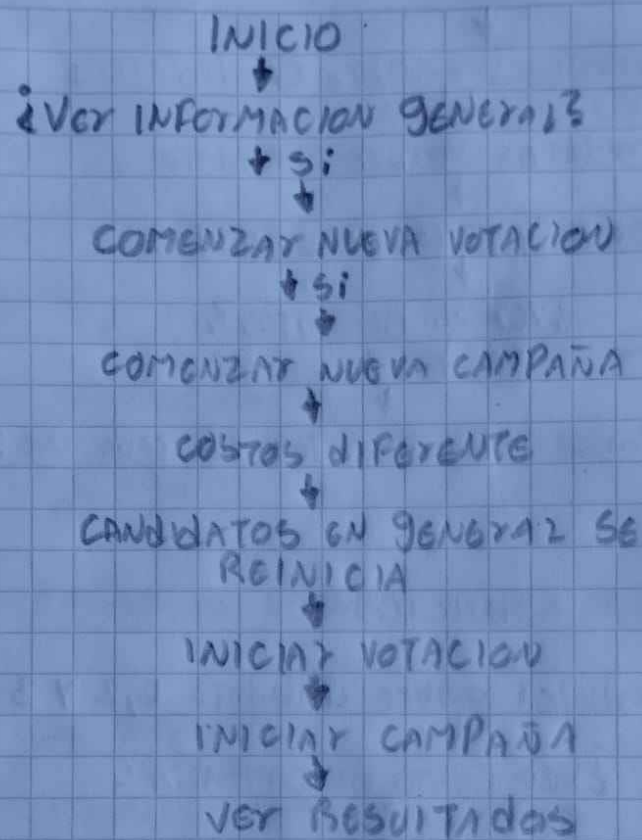 INICIO
¿Ver INFORMACION GENERAL?
Si
COMENZAR NUEVA VOTACION
Si
COMENZAR NUEVA CAMPAÑA
COSTOS DIFERENTE
CANDIDATOS EN GENERAL SE
REINICIA
INICIAR VOTACION
INICIAR CAMPAÑA
VER RESULTADOS